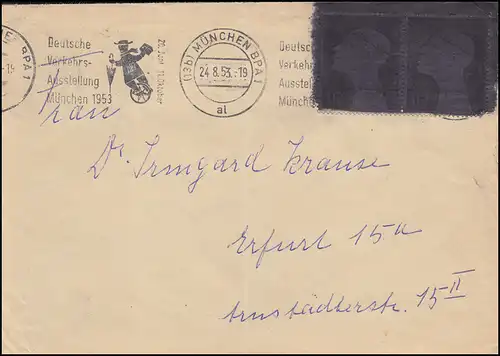 MÜNCHEN BPA 1
-19
Deutsche
Verkehrs-
Ausstellung
München 1953
20. Juni 11. Oktober
(13b) MÜNCHEN BPA 1
24.8.53.-19
al
Deutsche
Verkehrs
Ausstell
Münch
Frau
Dr. Irmgard Krause
Erfurt 15a
Arnstädterstr. 15 II